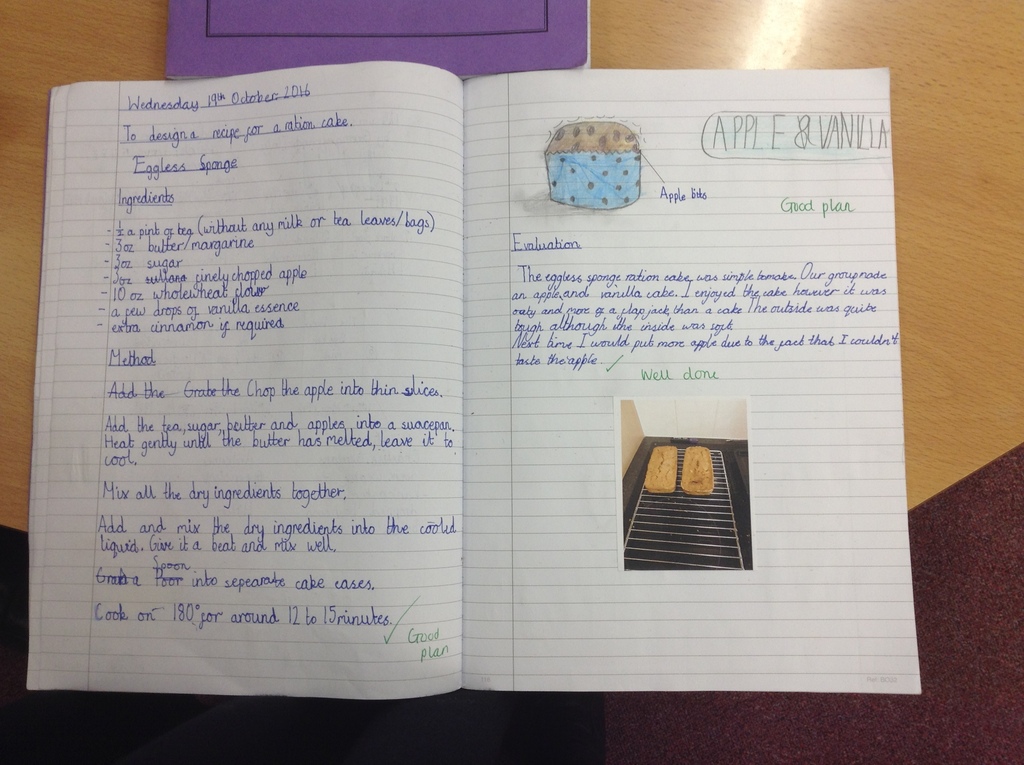 Wednesday 19th October 2016
To design a recipe for a ration cake.
Eggless Sponge
Ingredients
- ½ a pint of tea (without any milk or tea leaves/bags)
- 3oz butter/margarine
- 3oz sugar
- 3oz sultana finely chopped apple
- 10 oz wholewheat flour
- a few drops of vanilla essence
- extra cinnamon if required
Method
Add the Grate the Chop the apple into thin slices.
Add the tea, sugar, butter and apples into a suacepan.
Heat gently until the butter has melted, leave it to
cool.
Mix all the dry ingredients together.
Add and mix the dry ingredients into the cooled
liquid. Give it a beat and mix well.
Spoon
into sepearate cake cases.
Cook on 180° for around 12 to 15 minutes.
Good
plan
APPLE & VANILLA
Apple bits
Good plan
Evaluation
The eggless sponge ration cake was simple to make. Our group made
an apple and vanilla cake. I enjoyed the cake however it was
oaty and more of a flap jack than a cake. The outside was quite
tough although the inside was soft.
Next time I would put more apple due to the fact that I couldn't
taste the apple.
Well done